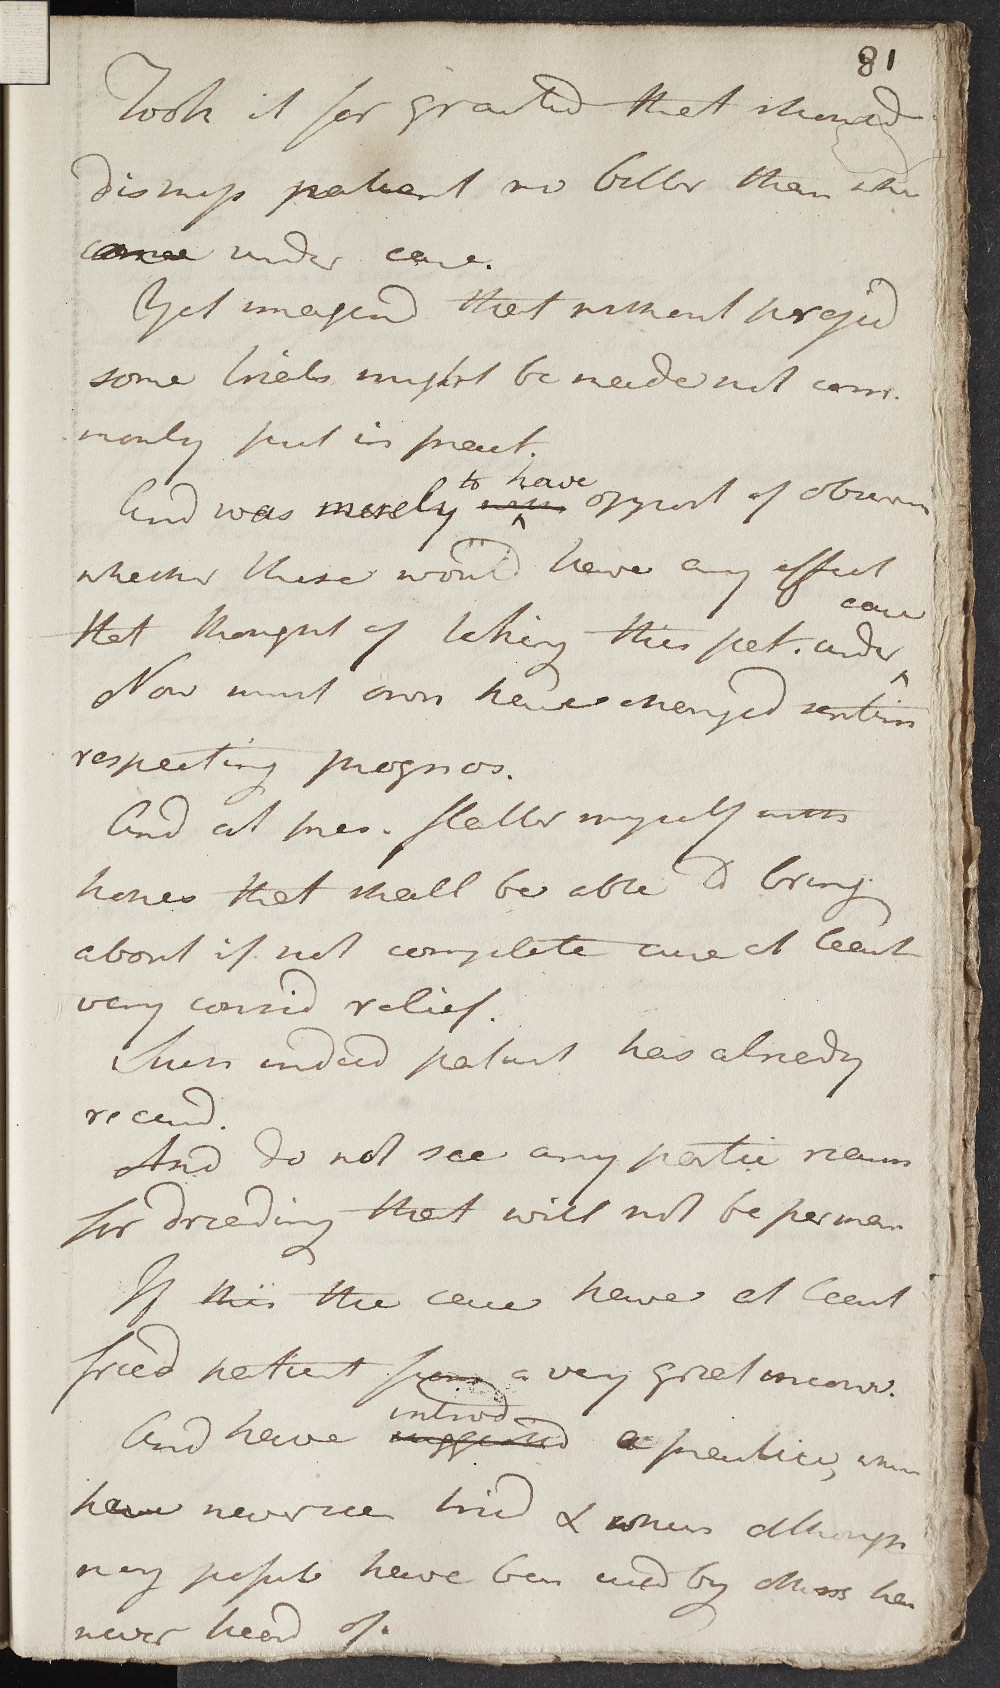 81
Took it for granted that should
dismiss patient no better than whn
came under care.
Yet imagind that without prejud
some trials might be made not com.
monly put in pract.
And was merely to have opport of observin
whether these would have any effect
that thought of taking this pat. under care
Now must own have changed sentim
respecting prognos.
And at pres. flatter myself with
hopes that shall be able to bring
about if not complete cure at least
very consid relief.
Such indeed patient has already
receivd.
And do not see any partic reason
for dreeding that will not be perman
If this the case have at least
freed patient from a very great inconv.
And have introd a practice, which
have never seen tried & which although
may possib have been used by others hav
never heard of.